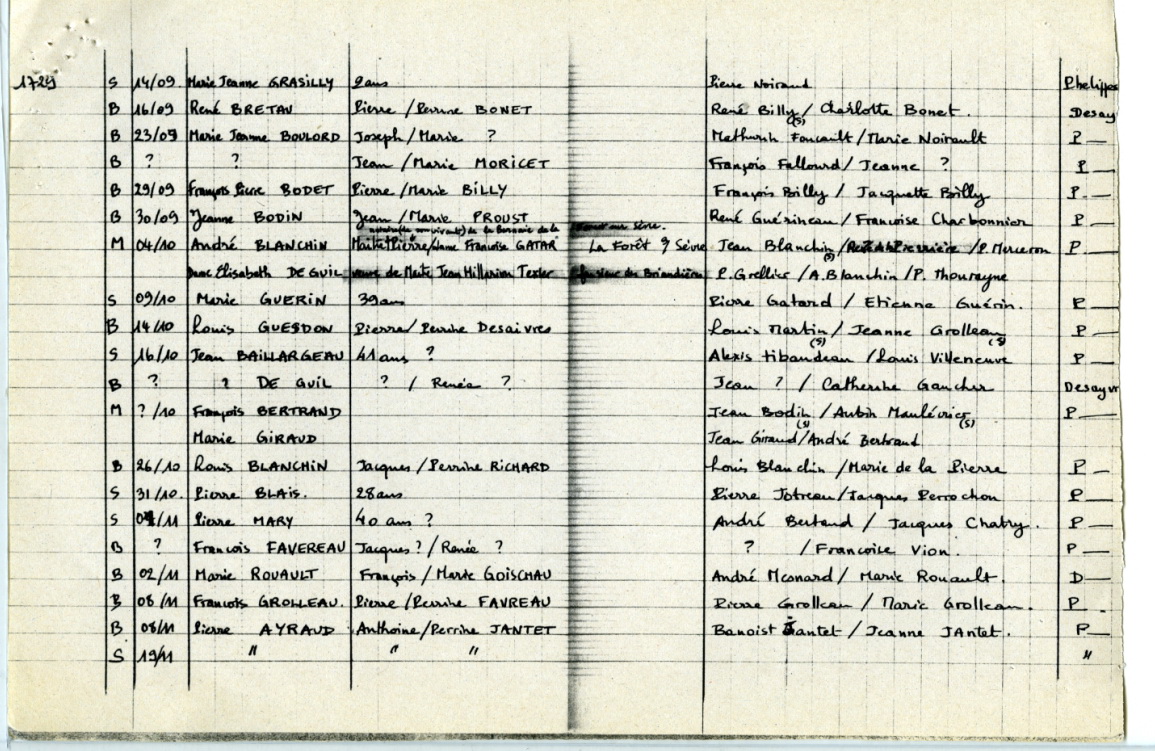 1729 S 14/09 Marie Jeanne GRASILLY 2 ans Pierre Noiraud Phelippes
B 16/09 René BRETAU Pierre / Perrine BONET René Billy (s) / Charlotte Bonet. Desay
B 23/09 Marie Jeanne BOULORD Joseph / Marie ? Mathurin Foucault / Marie Noirault P
B ? ? Jean / Marie MORICET François Fallourd / Jeanne ? P
B 29/09 François Pierre BODET Pierre / Marie BILLY François Billy / Jacquette Billy P
B 30/09 Jeanne BODIN Jean / Marie PROUST René Guérineau / Francoise Charbonnion P
M 04/10 André BLANCHIN Maitre Pierre / dame Françoise GATAR La Forêt / Sèvre Jean Blanchin (s) / P. Merceron P
Dame Elisabeth DE GUIL veuve de Maitre Jean Hillarion Texier P. Grellier / A. Blanchin / P. Thourayne
S 09/10 Marie GUERIN 39 ans Pierre Gatard / Etienne Guérin. P
B 14/10 Louis GUESDON Pierre / Perrine Desaivres Louis Martin (s) / Jeanne Grolleau (s) P
S 16/10 Jean BAILLARGEAU 41 ans ? Alexis Tibaudeau / Louis Villeneuve P
B ? ? DE GUIL ? / Renée ? Jean ? / Catherine Gaucher Desayvr
M ?/10 François BERTRAND Jean Bodin (s) / Aubin Maulévrier (s) P
Marie GIRAUD Jean Giraud / André Bertrand
B 26/10 Louis BLANCHIN Jacques / Perrine RICHARD Louis Blanchin / Marie de la Pierre P
S 31/10. Pierre BLAIS. 28 ans Pierre Jotreau / Jacques Perrochon P
S /11 Pierre MARY 40 ans ? André Bertand / Jacques Chabry. P
B ? Francois FAVEREAU Jacques ? / Renée ? ? / Francoise Vion. P
B 02/11 Marie ROUAULT François / Marie GOISCHAU André Mesnard / Marie Rouault. D
B 08/11 Francois GROLLEAU. Pierre / Perrine FAVREAU Pierre Grolleau / Marie Grolleau. P
B 08/11 Pierre AYRAUD Anthoine / Perrine JANTET Banoist Jantet / Jeanne JAntet. P
S 19/11 " " " "